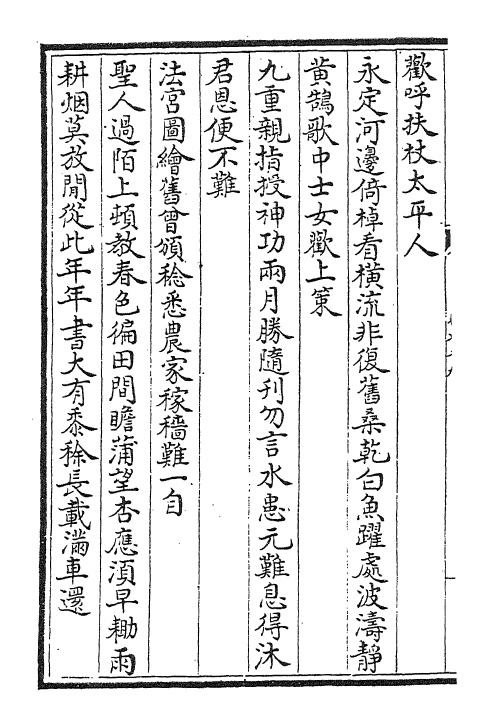 歡呼扶杖太平人
永定河邊倚棹看橫流非復舊桑乾白魚躍處波濤靜
黄鵠歌中士女歡上策
九重親指授神功兩月勝隨刋勿言水患元難息得沐
君恩便不難
法宫圖繪舊曾頒稔悉農家稼穡難一自
聖人過陌上頓教春色徧田間瞻蒲望杏應湏早耡雨
耕烟莫放閒從此年年書大有黍稌長載滿車還